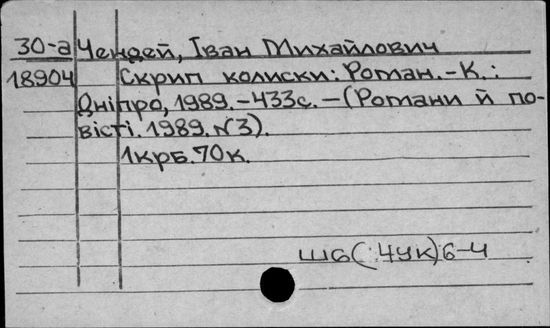 30-а Чендей, Іван Михайлович
18904 Скрип колиски: Роман.-К.:
Дніпро, 1989.-433с.-(Романи й по-
вісті. 1989. №3).
1крб.70к.
Ш6(:4УК)6-4